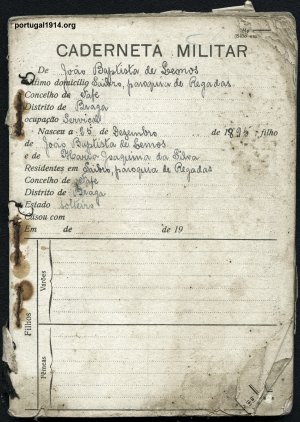 portugal1914.org
CADERNETA MILITAR
De João Baptista de Lemos
Último domicílio Suibro, paroquia de Regadas
Concelho de Fafe
Distrito de Braga
Ocupação Serviçal
Nasceu a 25 de Dezembro de 189 filho
de João Baptista de Lemos
e de Maria Joaquina da Silva
Residentes em Suibro, paroquia de Regadas
Concelho de Fafe
Distrito de Braga
Estado solteiro
Casou com
Em de de 19
Filhos
Varões
Fêmeas